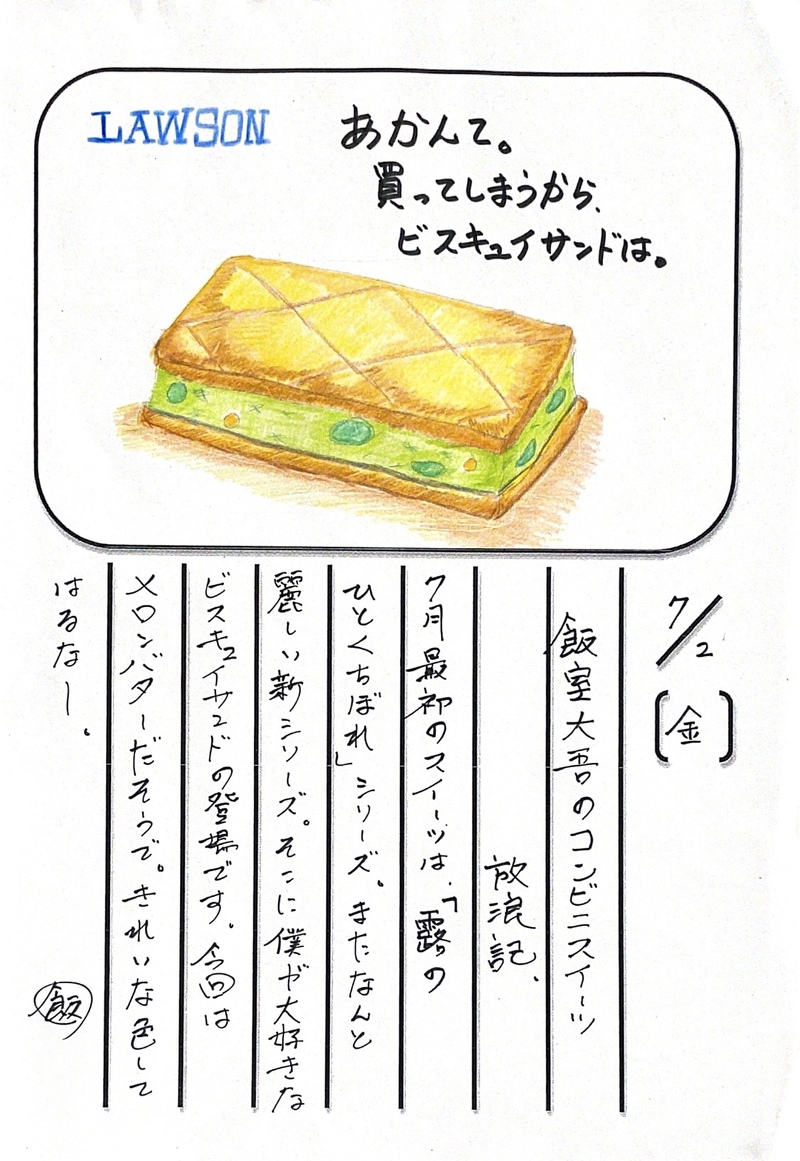 LAWSON
あかんて。
買ってしまうから、
ビスキュイサンドは。
7/2
(金)
飯室大吾のコンビニスイーツ
放浪記、
7月最初のスイーツは、「露の
ひとくちぼれ」シリーズ。またなんと
麗しい新シリーズ。そこに僕が大好きな
ビスキュイサンドの登場です。今回は
メロンバターだそうで。きれいな色して
はるなー。
飯